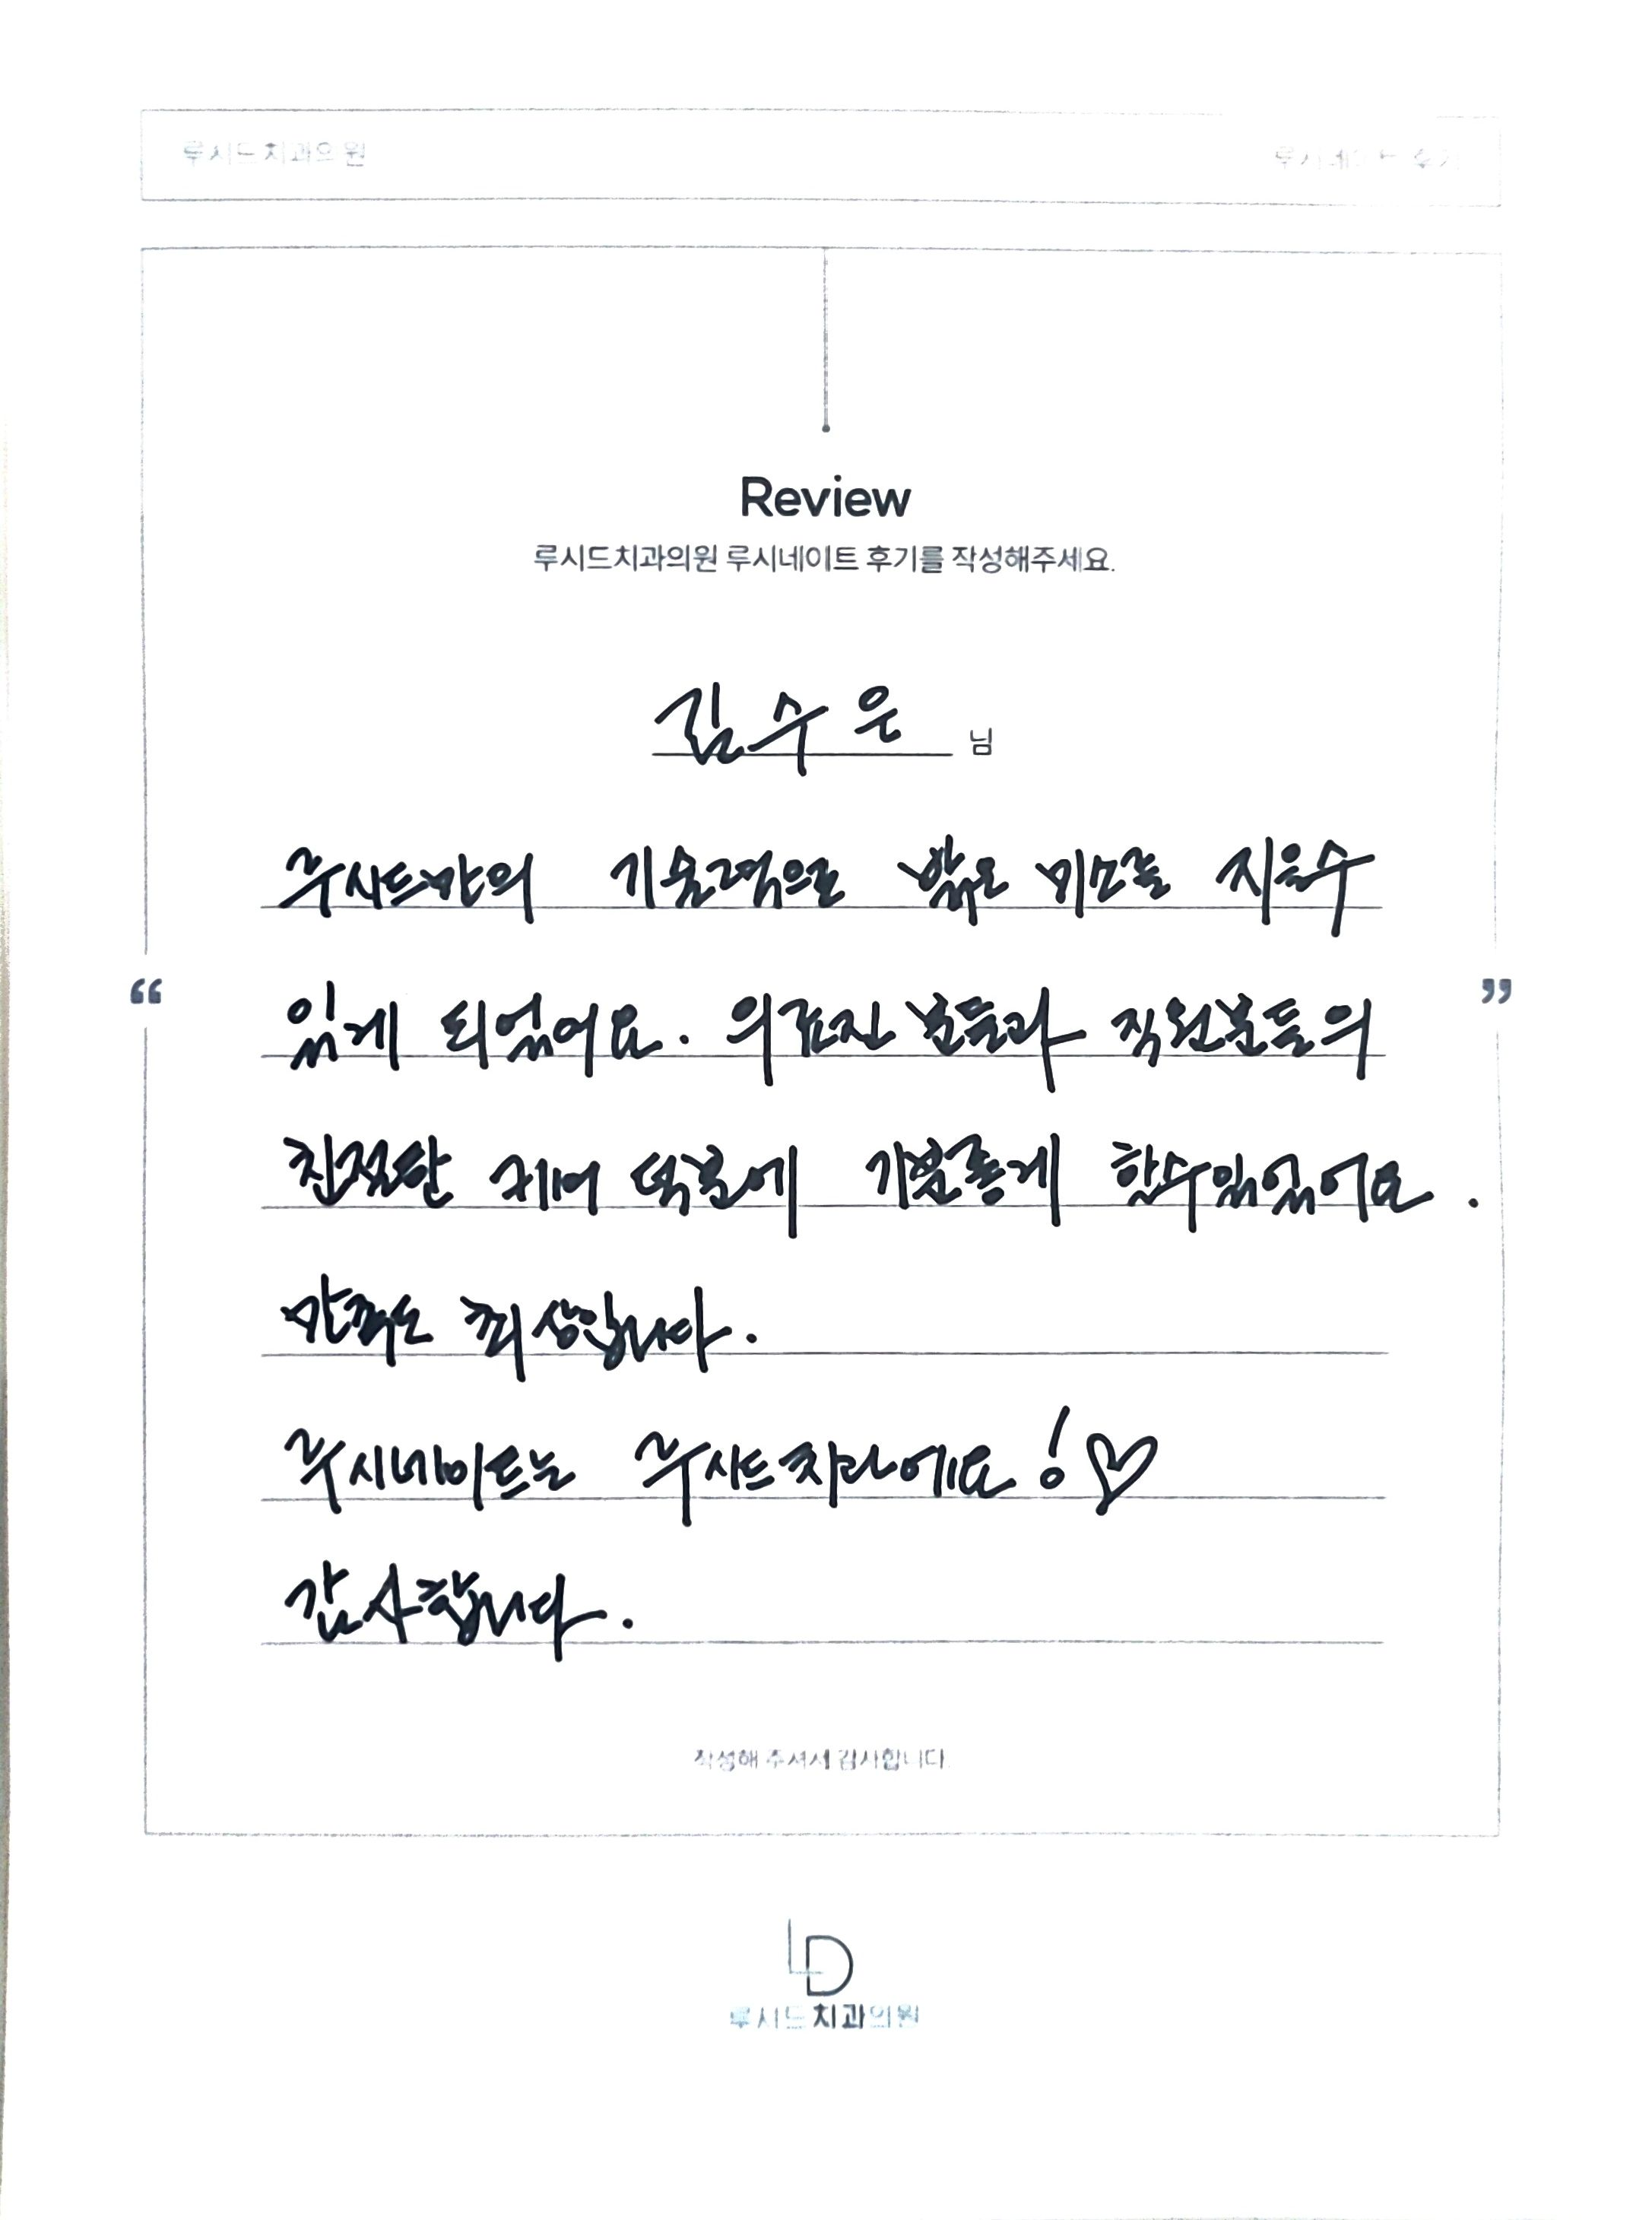 루시드치과의원
루시네이트 후기
Review
루시드치과의원 루시네이트 후기를 작성해주세요.
김수은 님
루시드만의 기술력으로 밝은 미소를 지을수
“ 있게 되었어요. 의료진 분들과 직원분들의 ”
친절한 케어 덕분에 기분좋게 할수있었어요.
만족도 최상입니다.
루시네이트는 루시드치과에요!♡
감사합니다.
작성해 주셔서 감사합니다.
LD
루시드치과의원